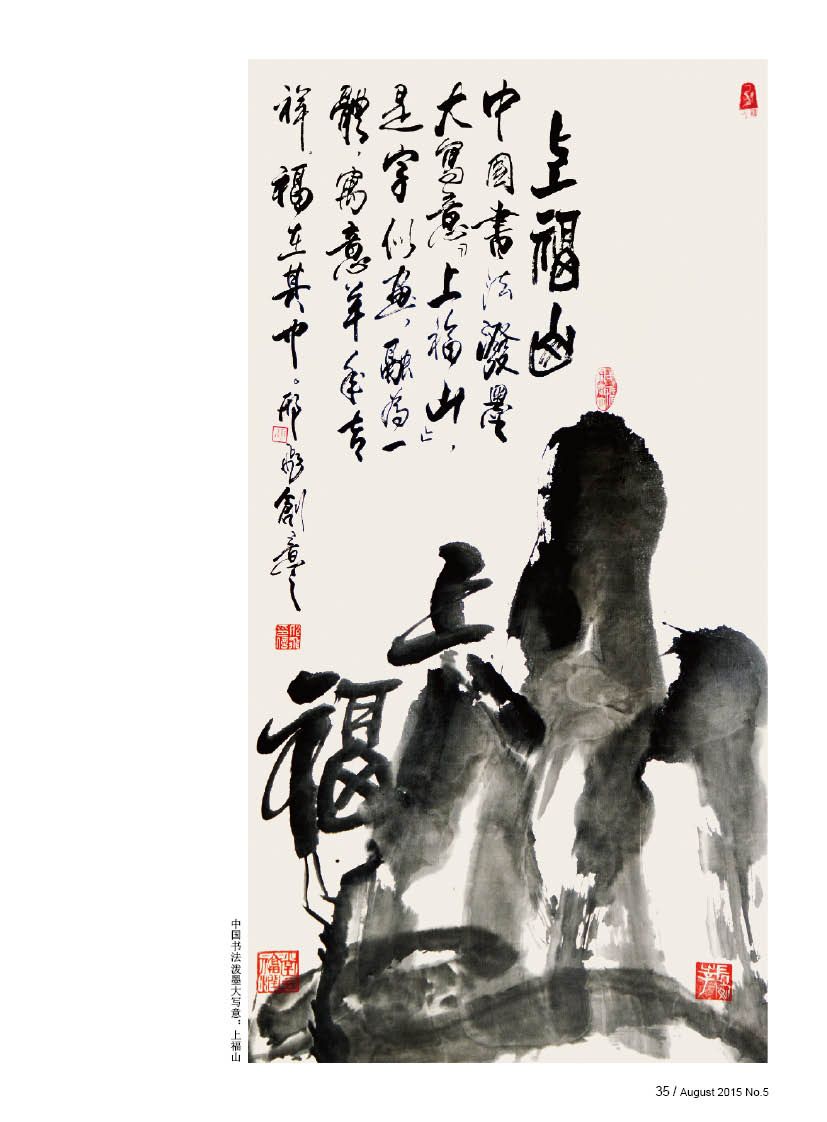 上福山
中國書法潑墨
大寫意『上福山』，
是字似畫，融為一
體，寓意羊年吉
祥，福在其中。邢創意
上
福
中国书法泼墨大写意：上福山
35 / August 2015 No.5